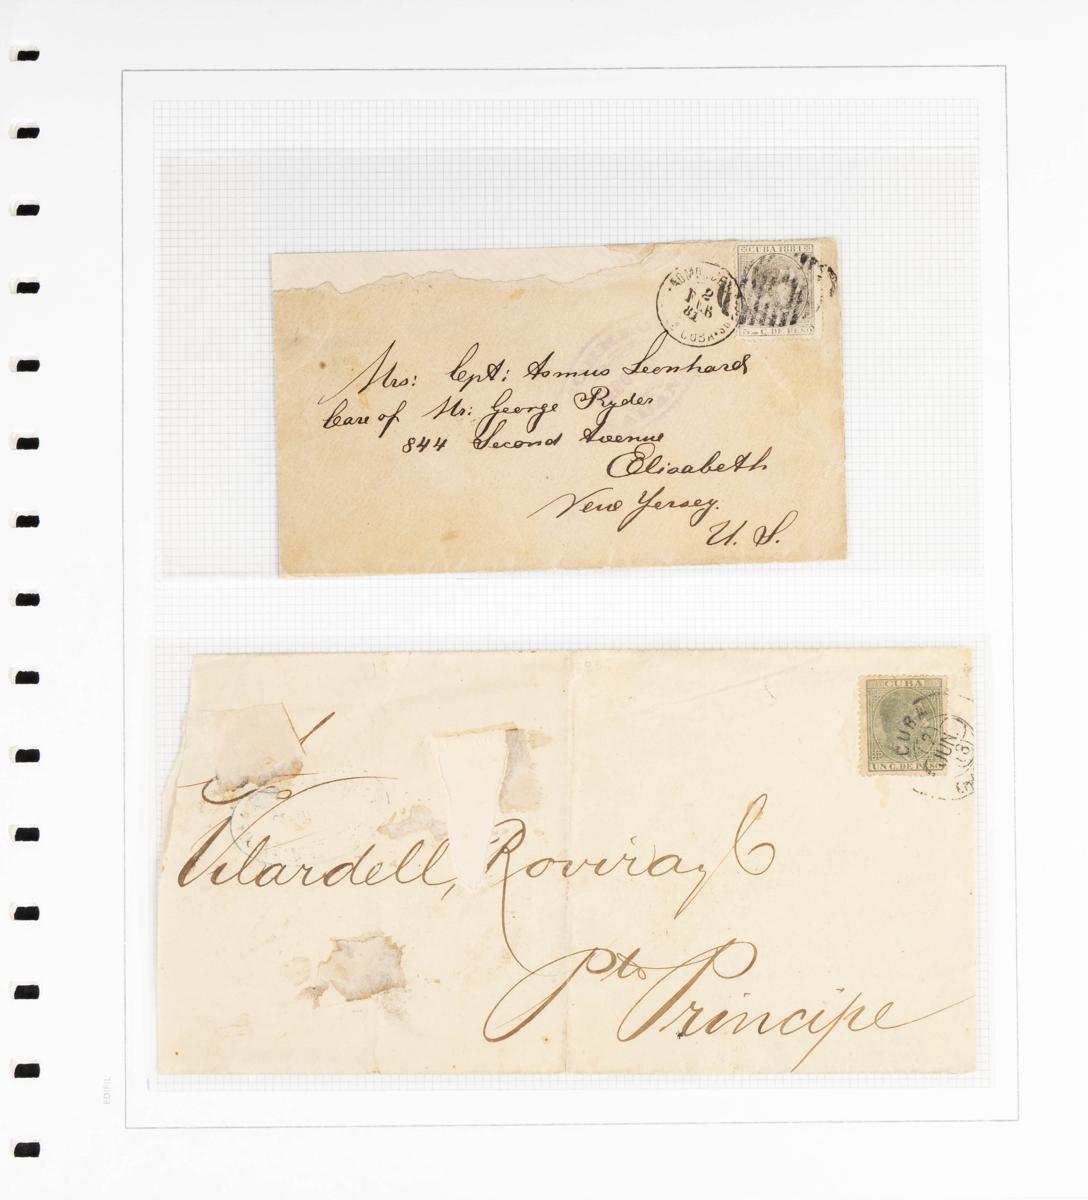 CUBA 1881
2
FEB
81
CUBA
C. DE PESO
Mrs: Cpt: Asmus Leonhard
Care of Mr: George Ryder
844 Second Avenue
Elisabeth
New Yersey.
U. S.
CUBA
CUBA
2
JUN.
UN C. DE PESO
Vilardell, Rovira y C
Pto Principe
EDIFIL